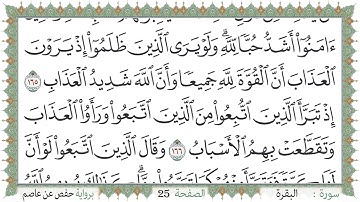 ءَامَنُوٓا۟ أَشَدُّ حُبًّا لِّلَّهِ ۗ وَلَوْ يَرَى ٱلَّذِينَ ظَلَمُوٓا۟ إِذْ يَرَوْنَ
ٱلْعَذَابَ أَنَّ ٱلْقُوَّةَ لِلَّهِ جَمِيعًا وَأَنَّ ٱللَّهَ شَدِيدُ ٱلْعَذَابِ ١٦٥
إِذْ تَبَرَّأَ ٱلَّذِينَ ٱتُّبِعُوا۟ مِنَ ٱلَّذِينَ ٱتَّبَعُوا۟ وَرَأَوُا۟ ٱلْعَذَابَ
وَتَقَطَّعَتْ بِهِمُ ٱلْأَسْبَابُ ١٦٦ وَقَالَ ٱلَّذِينَ ٱتَّبَعُوا۟ لَوْ أَنَّ
سورة : البقرة الصفحة 25 برواية حفص عن عاصم